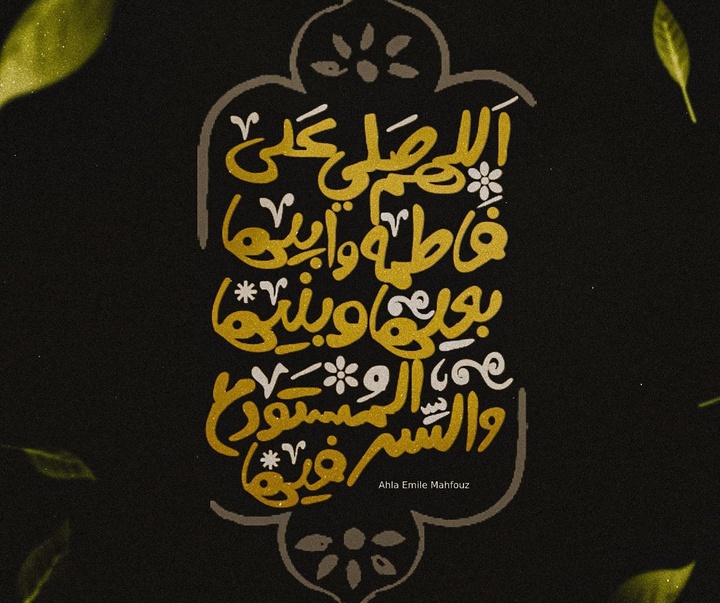 اللهم صلي على
فاطمة وابيها
بعليها وبنيها
والسّر المستودع
فيها
Ahla Emile Mahfouz